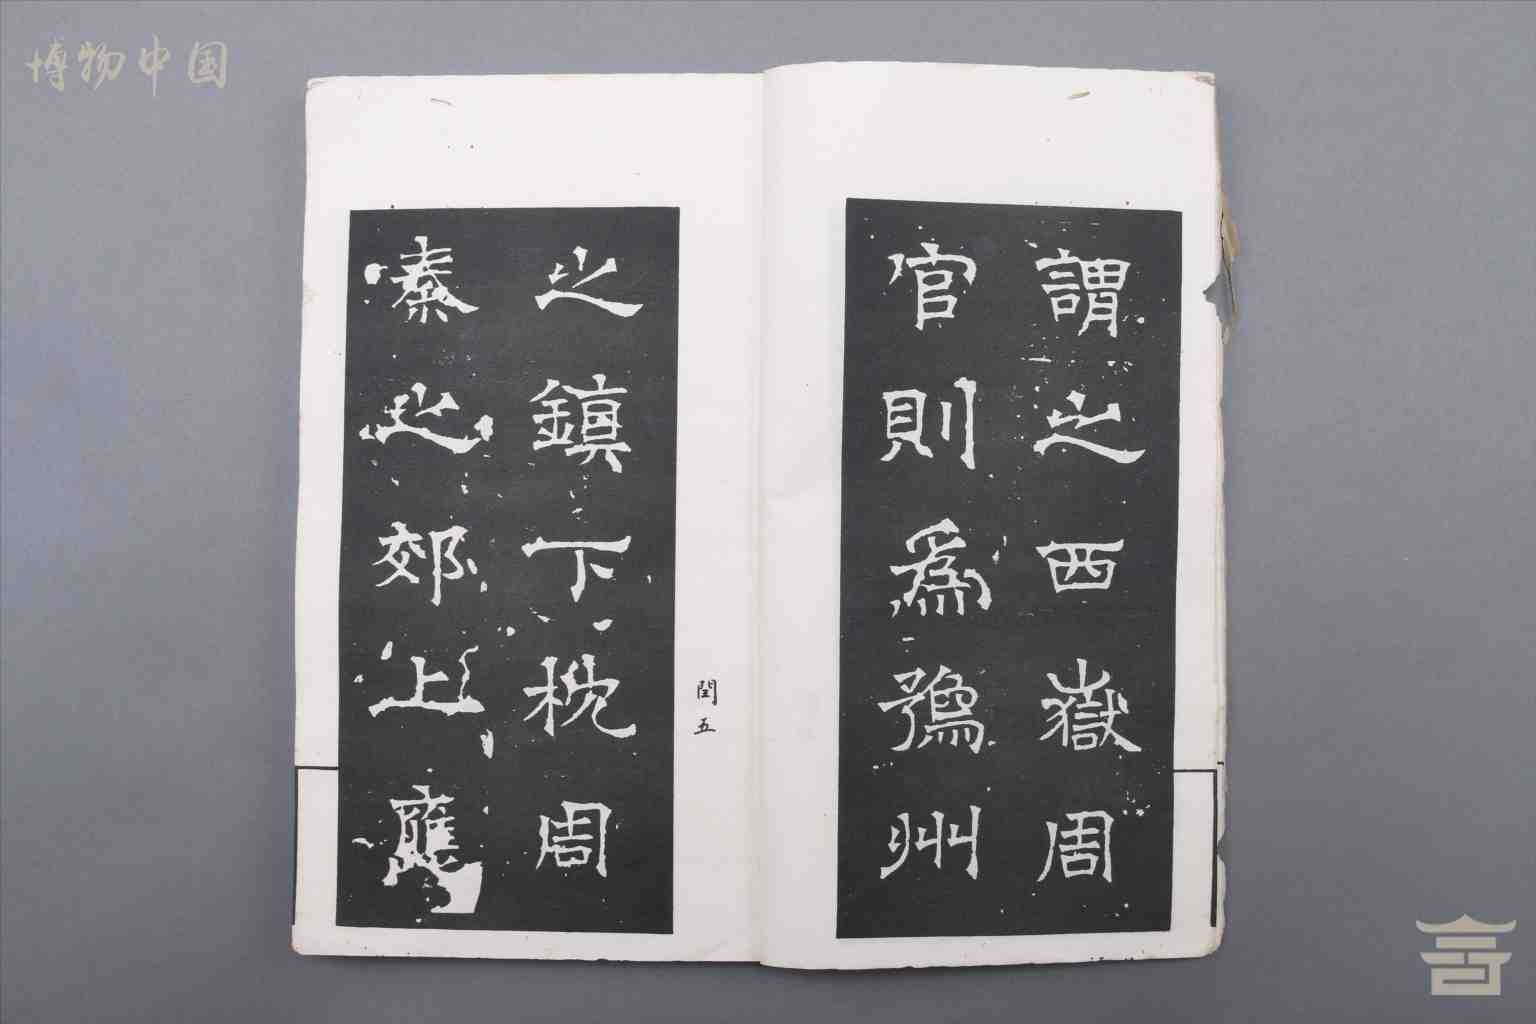 博物中国
謂之西嶽周
官則爲豫州
之鎮下枕周
秦之郊上應
閏五